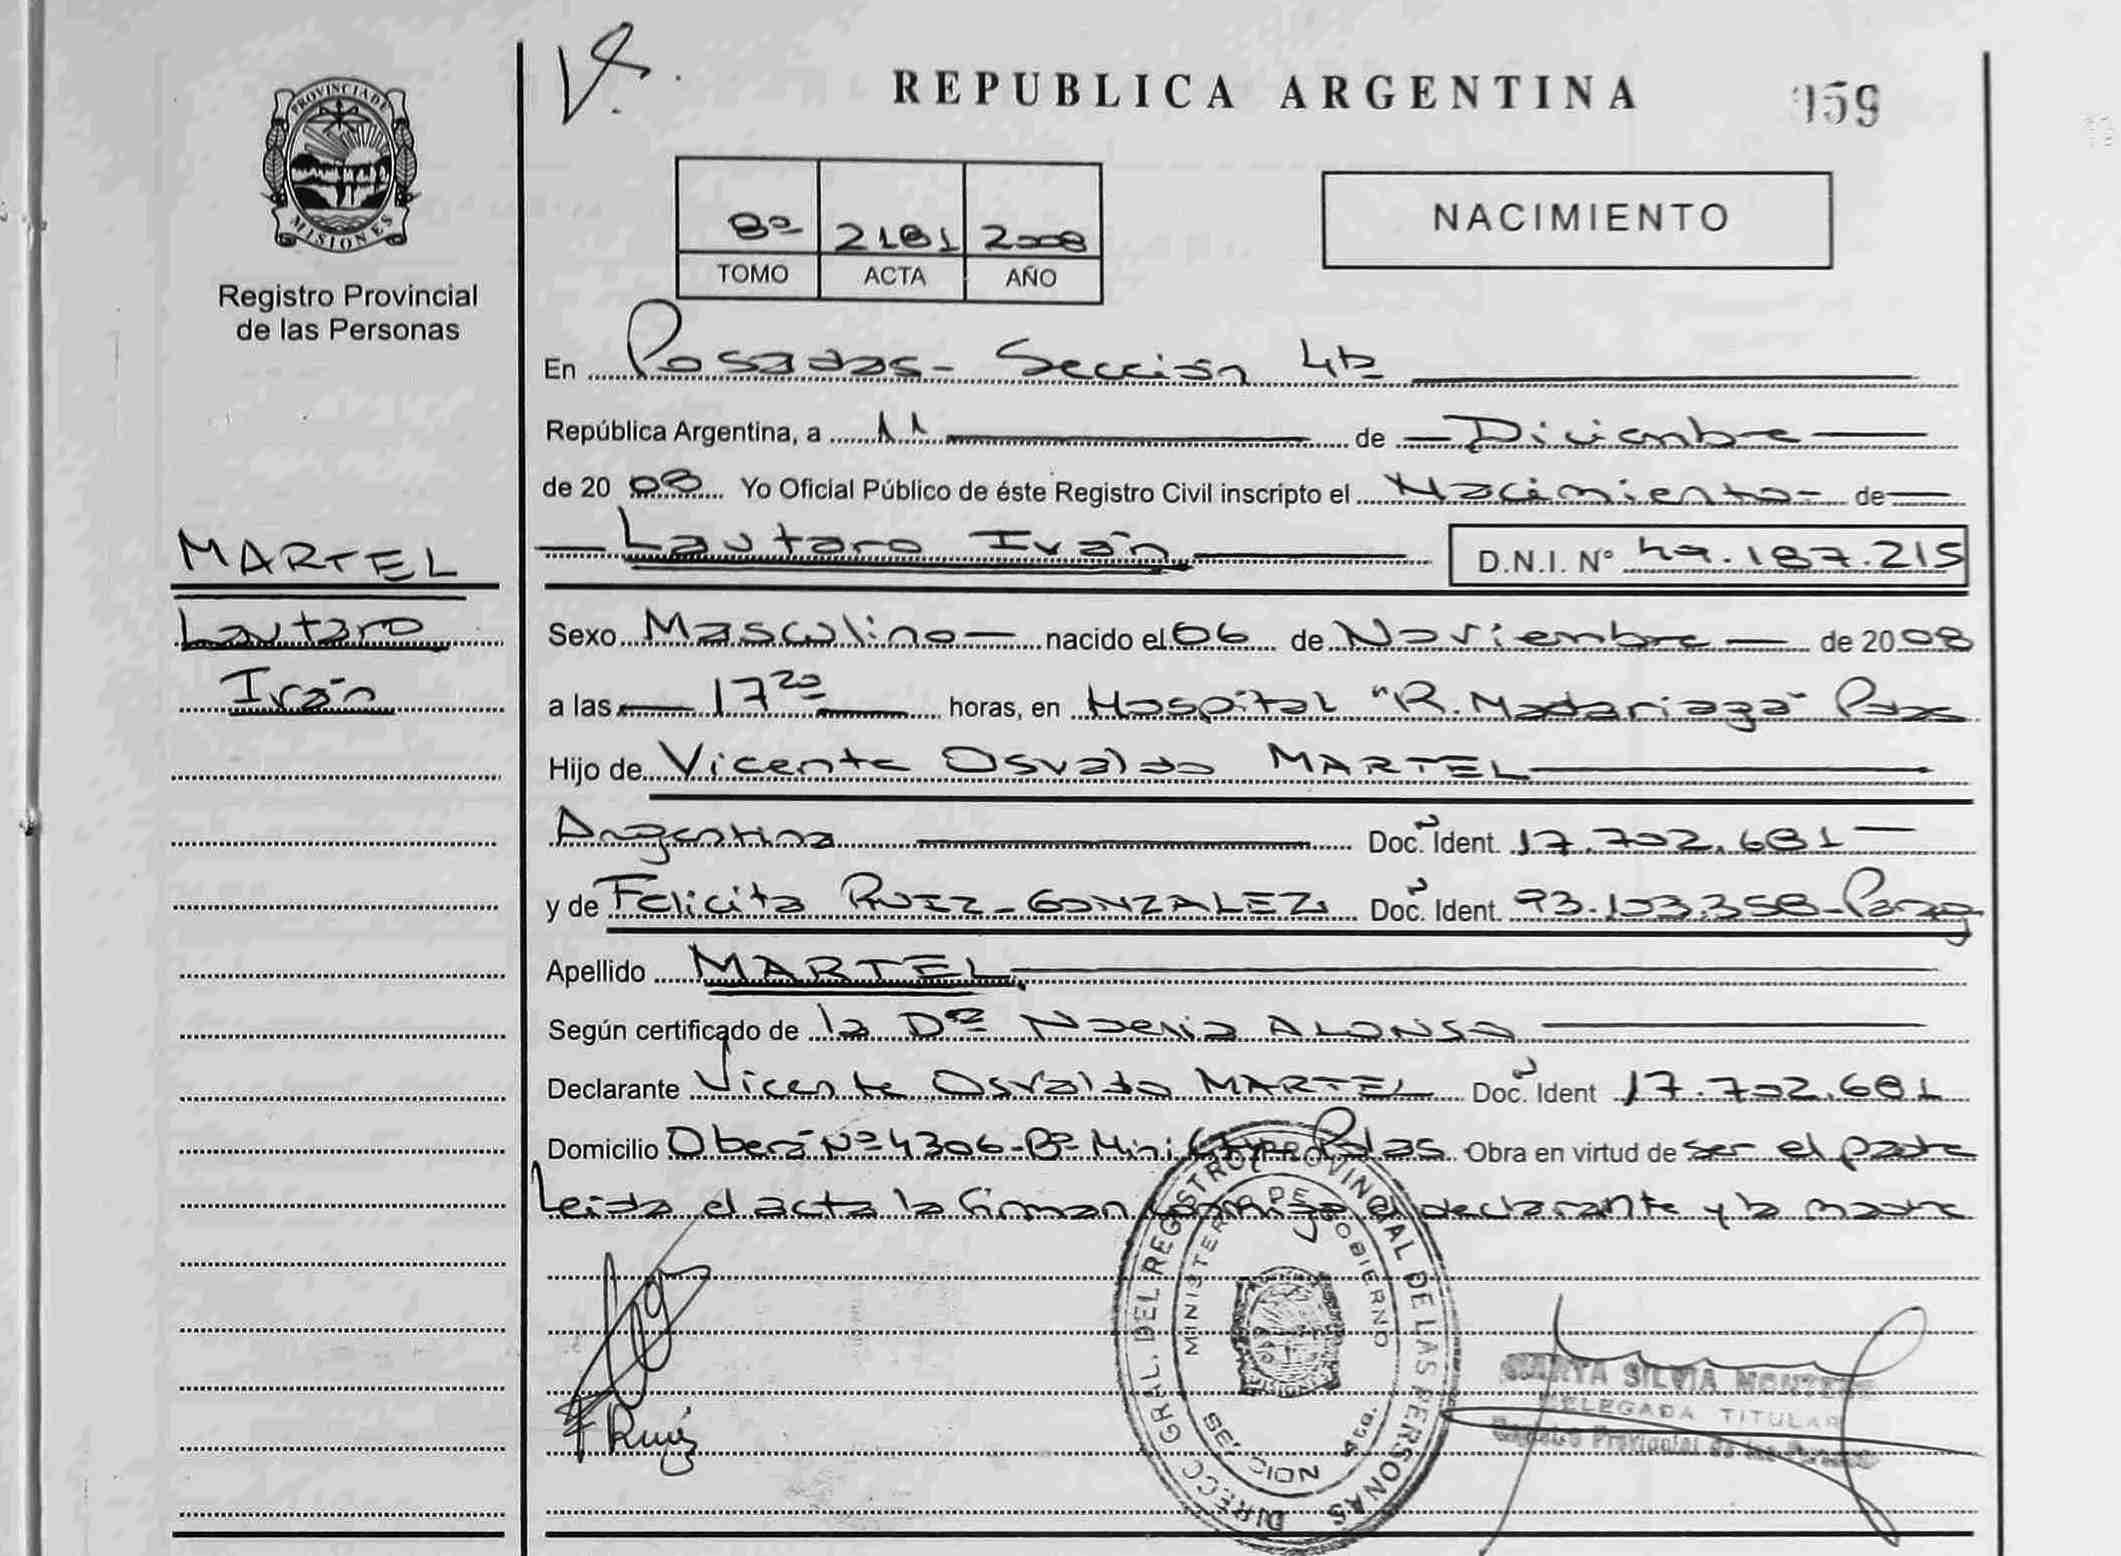 PROVINCIA DE
MISIONES
Registro Provincial
de las Personas
REPUBLICA ARGENTINA
159
8º 2181 2008
TOMO ACTA AÑO
NACIMIENTO
En Posadas - Sección 4ta
República Argentina, a 11 de Diciembre
de 2008 Yo Oficial Público de éste Registro Civil inscripto el Nacimiento de
MARTEL
Lautaro
Iván
Lautaro Iván D.N.I. Nº 49.187.215
Sexo Masculino nacido el 06 de Noviembre de 2008
a las 17 20 horas, en Hospital "R. Madariaga" Pdas
Hijo de Vicente Osvaldo MARTEL
Argentina Doc. Ident. 17.702.681
y de Felicita RUIZ - GONZALEZ Doc. Ident. 93.103.358 - Parag
Apellido MARTEL
Según certificado de la Dra Noelia ALONSO
Declarante Vicente Osvaldo MARTEL Doc. Ident 17.702.681
Domicilio Oberá Nº 4306 - Bº Mini City Pdas. Obra en virtud de ser el padre
Leida el acta la firman conmigo el declarante y la madre
F Ruiz
DIREC GRAL. DEL REGISTRO PROVINCIAL DE LAS PERSONAS
MINISTERIO DE GOBIERNO
SECCION 4ta.
MARTA SILVIA
DELEGADA TITULAR
Registro Provincial de las Personas